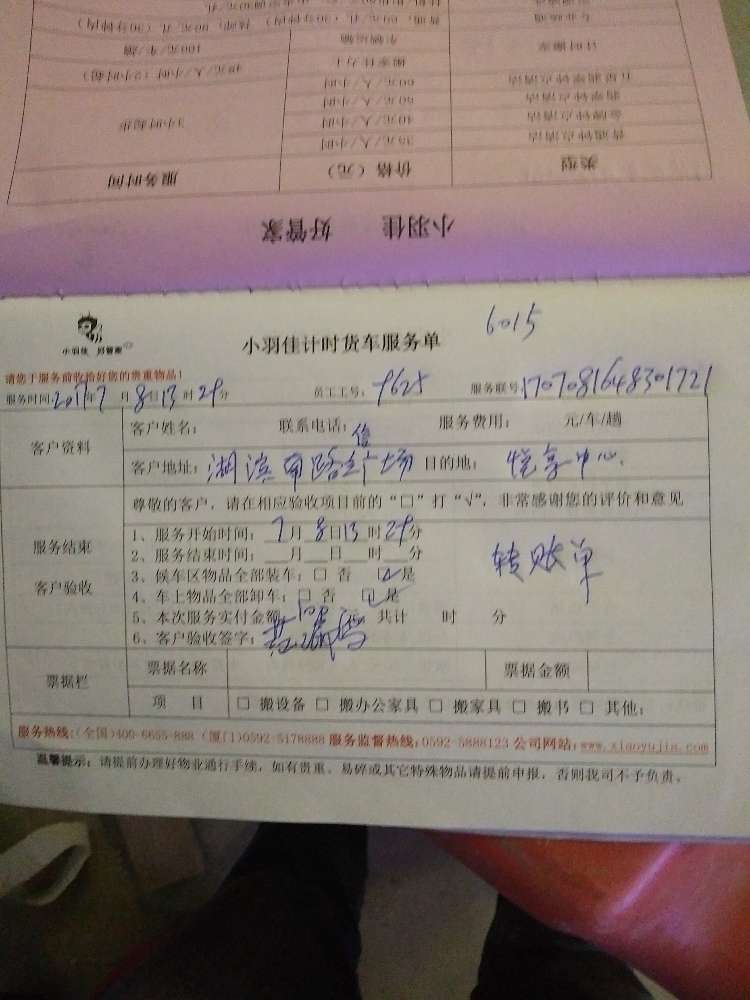 专业疏通
计时搬家 车辆运输 100元/车/趟
搬家佳力士 49元/人/小时 (2小时起)
五星级钟点清洁 60元/人/小时
翡翠钟点清洁 50元/人/小时
金牌钟点清洁 40元/人/小时 3小时起步
普通钟点清洁 35元/人/小时
类型 价格(元) 服务时间
小羽佳 好管家
6015
小羽佳 好管家
小羽佳计时货车服务单
请您于服务前收拾好您的贵重物品!
服务时间:2017年7月8日13时29分 员工工号: 9625 服务联号:1707081648301721
客户资料
客户姓名: 联系电话: 服务费用: 元/车/趟
客户地址: 湖滨南路 广场 目的地: 悦享中心.
服务结束
客户验收
尊敬的客户,请在相应验收项目前的“□”打“√”,非常感谢您的评价和意见
1、服务开始时间: 7月8日13时29分
2、服务结束时间:___月___日___时___分
转账单
3、候车区物品全部装车:□ 否 ☑是
4、车上物品全部卸车:□ 否 ☑是
5、本次服务实付金额 元 共计 时 分
6、客户验收签字:
票据栏
票据名称 票据金额
项 目 □ 搬设备 □ 搬办公家具 □ 搬家具 □ 搬书 □ 其他:
服务热线:(全国)400-6655-888 (厦门)0592-5178888 服务监督热线:0592-5888123 公司网站:www.xiaoyujia.com
温馨提示:请提前办理好物业通行手续,如有贵重、易碎或其它特殊物品请提前申报,否则我司不予负责。